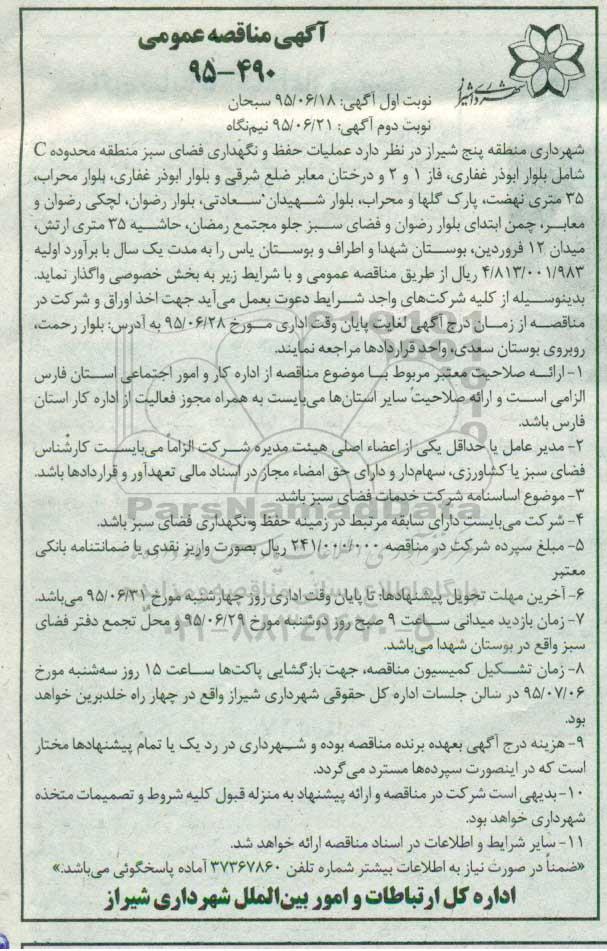 آگهی مناقصه عمومی
۹۵-۴۹۰
شهرداری شیراز
نوبت اول آگهی: ۹۵/۰۶/۱۸ سبحان
نوبت دوم آگهی: ۹۵/۰۶/۲۱ نیم‌نگاه
شهرداری منطقه پنج شیراز در نظر دارد عملیات حفظ و نگهداری فضای سبز منطقه محدوده C
شامل بلوار ابوذر غفاری، فاز ۱ و ۲ و درختان معابر ضلع شرقی و بلوار ابوذر غفاری، بلوار محراب،
۳۵ متری نهضت، پارک گلها و محراب، بلوار شهیدان سعادتی، بلوار رضوان، لچکی رضوان و
معابر، چمن ابتدای بلوار رضوان و فضای سبز جلو مجتمع رمضان، حاشیه ۳۵ متری ارتش،
میدان ۱۲ فروردین، بوستان شهدا و اطراف و بوستان یاس را به مدت یک سال با برآورد اولیه
۴/۸۱۳/۰۰۱/۹۸۳ ریال از طریق مناقصه عمومی و با شرایط زیر به بخش خصوصی واگذار نماید.
بدینوسیله از کلیه شرکت‌های واجد شرایط دعوت بعمل می‌آید جهت اخذ اوراق و شرکت در
مناقصه از زمان درج آگهی لغایت پایان وقت اداری مورخ ۹۵/۰۶/۲۸ به آدرس: بلوار رحمت،
روبروی بوستان سعدی، واحد قراردادها مراجعه نمایند.
۱- ارائه صلاحیت معتبر مربوط با موضوع مناقصه از اداره کار و امور اجتماعی استان فارس
الزامی است و ارائه صلاحیت سایر استان‌ها می‌بایست به همراه مجوز فعالیت از اداره کار استان
فارس باشد.
۲- مدیر عامل یا حداقل یکی از اعضاء اصلی هیئت مدیره شرکت الزاماً می‌بایست کارشناس
فضای سبز یا کشاورزی، سهام‌دار و دارای حق امضاء مجاز در اسناد مالی تعهدآور و قراردادها باشد.
۳- موضوع اساسنامه شرکت خدمات فضای سبز باشد.
ParsNamadData
۴- شرکت می‌بایست دارای سابقه مرتبط در زمینه حفظ و نگهداری فضای سبز باشد.
۵- مبلغ سپرده شرکت در مناقصه ۲۴۱/۰۰۰/۰۰۰ ریال بصورت واریز نقدی یا ضمانتنامه بانکی
معتبر
۶- آخرین مهلت تحویل پیشنهادها: تا پایان وقت اداری روز چهارشنبه مورخ ۹۵/۰۶/۳۱ می‌باشد.
۷- زمان بازدید میدانی ساعت ۹ صبح روز دوشنبه مورخ ۹۵/۰۶/۲۹ و محل تجمع دفتر فضای
سبز واقع در بوستان شهدا می‌باشد.
۸- زمان تشکیل کمیسیون مناقصه، جهت بازگشایی پاکت‌ها ساعت ۱۵ روز سه‌شنبه مورخ
۹۵/۰۷/۰۶ در سالن جلسات اداره کل حقوقی شهرداری شیراز واقع در چهار راه خلدبرین خواهد
بود.
۹- هزینه درج آگهی بعهده برنده مناقصه بوده و شهرداری در رد یک یا تمام پیشنهادها مختار
است که در اینصورت سپرده‌ها مسترد می‌گردد.
۱۰- بدیهی است شرکت در مناقصه و ارائه پیشنهاد به منزله قبول کلیه شروط و تصمیمات متخذه
شهرداری خواهد بود.
۱۱- سایر شرایط و اطلاعات در اسناد مناقصه ارائه خواهد شد.
«ضمناً در صورت نیاز به اطلاعات بیشتر شماره تلفن ۳۷۳۶۷۸۶۰ آماده پاسخگوئی می‌باشد.»
اداره کل ارتباطات و امور بین‌الملل شهرداری شیراز